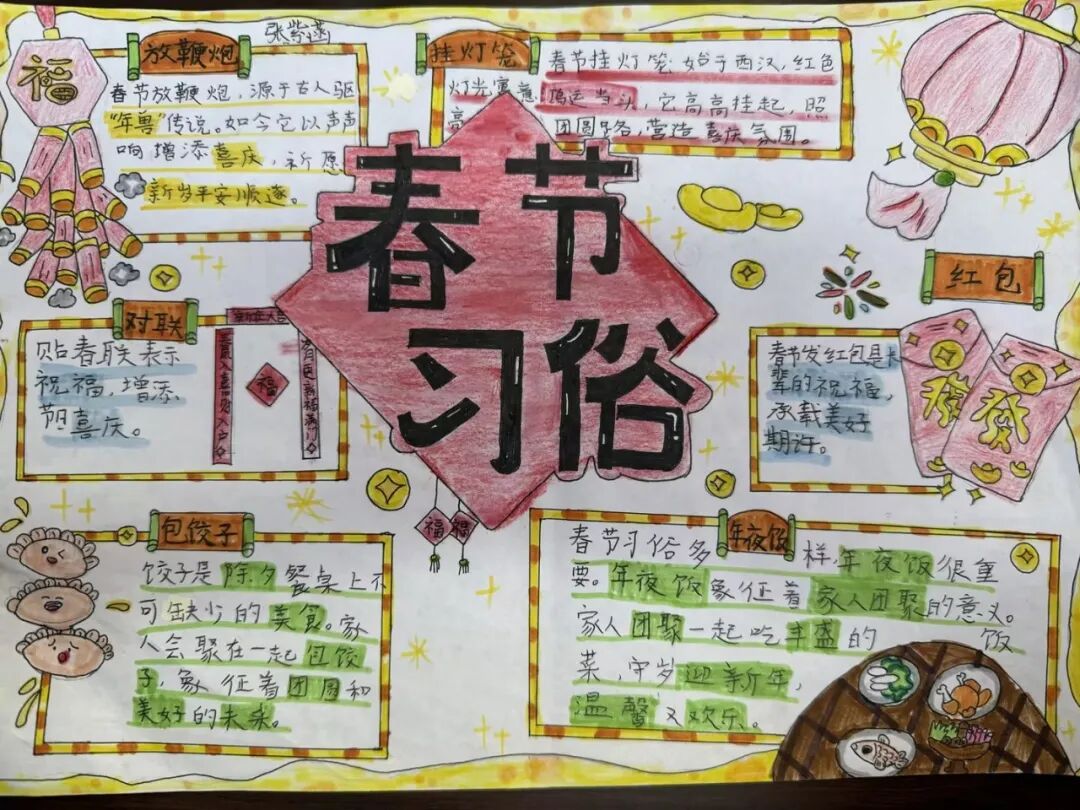 张紫涵
福
放鞭炮
春节放鞭炮，源于古人驱
“年兽”传说。如今它以声声
响增添喜庆，祈愿
新岁平安顺遂。
挂灯笼
春节挂灯笼始于西汉，红色
灯光寓意鸿运当头，它高高挂起，照
亮团圆路，营造喜庆氛围。
春节
习俗
福 福
对联
贴春联表示
祝福，增添
节日喜庆。
福
红包
春节发红包是长
辈的祝福，
承载美好
期许。
發
發
包饺子
饺子是除夕餐桌上不
可缺少的美食。家
人会聚在一起包饺
子，象征着团圆和
美好的未来。
年夜饭
春节习俗多样，年夜饭很重
要。年夜饭象征着家人团聚的意义。
家人团聚一起吃丰盛的饭
菜，守岁迎新年，
温馨又欢乐。